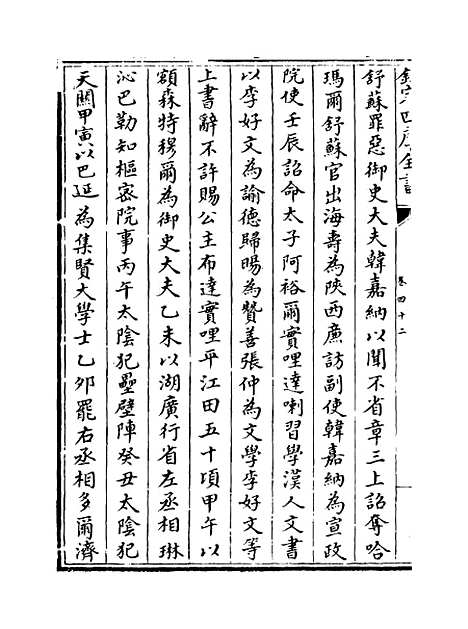 欽定四庫全書
卷四十二
舒蘇罪惡御史大夫韓嘉納以聞不省章三上詔奪哈
瑪爾舒蘇官出海壽為陝西廉訪副使韓嘉納為宣政
院使壬辰詔命太子阿裕爾實哩達喇習學漢人文書
以李好文為諭德歸暘為贊善張仲為文學李好文等
上書辭不許賜公主布達實哩平江田五十項甲午以
額森特穆爾為御史大夫乙未以湖廣行省左丞相琳
沁巴勒知樞密院事丙午太陰犯壘壁陣癸丑太陰犯
天關甲寅以巴延為集賢大學士乙夘罷右丞相多爾濟